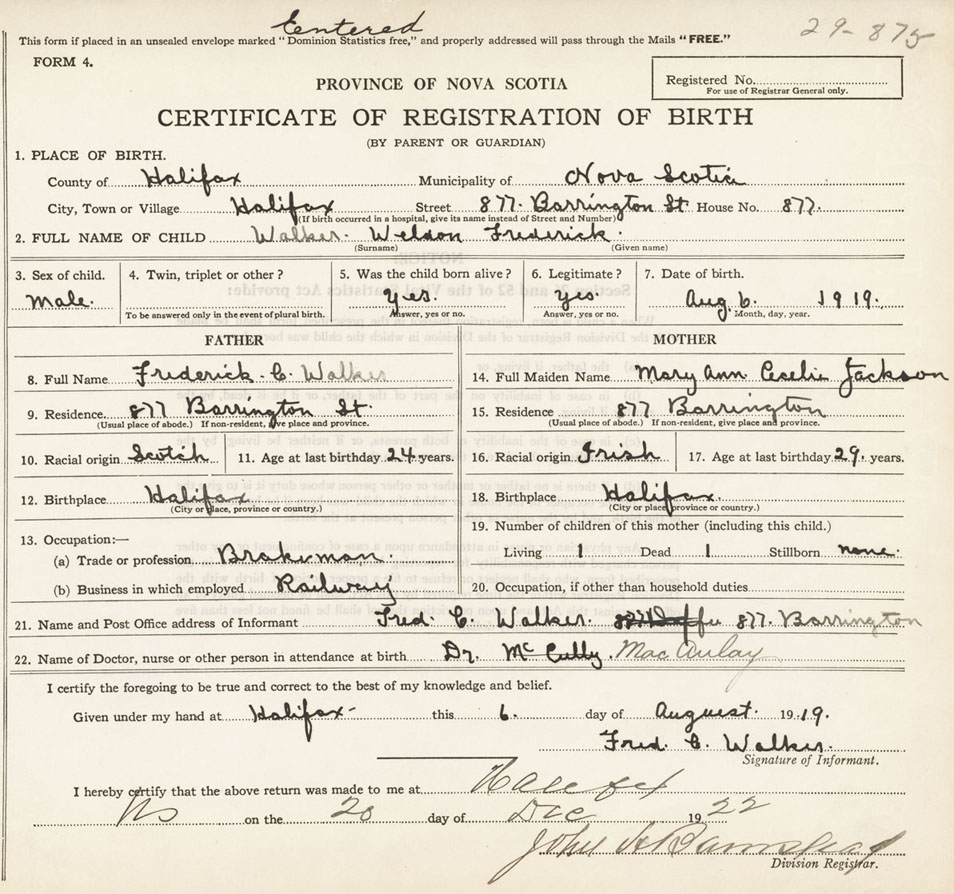 Entered
29-875
This form if placed in an unsealed envelope marked "Dominion Statistics free," and properly addressed will pass through the Mails "FREE."
FORM 4.
Registered No.
For use of Registrar General only.
PROVINCE OF NOVA SCOTIA
CERTIFICATE OF REGISTRATION OF BIRTH
(BY PARENT OR GUARDIAN)
1. PLACE OF BIRTH.
County of Halifax Municipality of Nova Scotia
City, Town or Village Halifax Street 877. Barrington St. House No. 877.
(If birth occurred in a hospital, give its name instead of Street and Number)
2. FULL NAME OF CHILD Walker. Weldon Frederick.
(Surname) (Given name)
3. Sex of child. 4. Twin, triplet or other? 5. Was the child born alive? 6. Legitimate? 7. Date of birth.
Male. Yes. Yes. Aug. 6. 1919.
To be answered only in the event of plural birth. Answer, yes or no. Answer, yes or no. Month, day, year.
FATHER MOTHER
8. Full Name Frederick. C. Walker 14. Full Maiden Name Mary Ann Cecelia Jackson
9. Residence. 877 Barrington St. 15. Residence 877 Barrington
(Usual place of abode.) If non-resident, give place and province. (Usual place of abode.) If non-resident, give place and province.
10. Racial origin Scotch 11. Age at last birthday 24 years. 16. Racial origin Irish 17. Age at last birthday 29. years.
12. Birthplace Halifax 18. Birthplace Halifax.
(City or place, province or country.) (City or place, province or country.)
19. Number of children of this mother (including this child.)
13. Occupation:—
(a) Trade or profession Brakeman. Living 1 Dead 1 Stillborn none.
(b) Business in which employed Railway 20. Occupation, if other than household duties
21. Name and Post Office address of Informant Fred. C. Walker. 877. Barrington
22. Name of Doctor, nurse or other person in attendance at birth Dr. McCully. MacAulay
I certify the foregoing to be true and correct to the best of my knowledge and belief.
Given under my hand at Halifax- this 6. day of August. 1919.
Fred. C. Walker.
Signature of Informant.
I hereby certify that the above return was made to me at Halifax
NS on the 20 day of Dec 1922
John A Barnstead
Division Registrar.